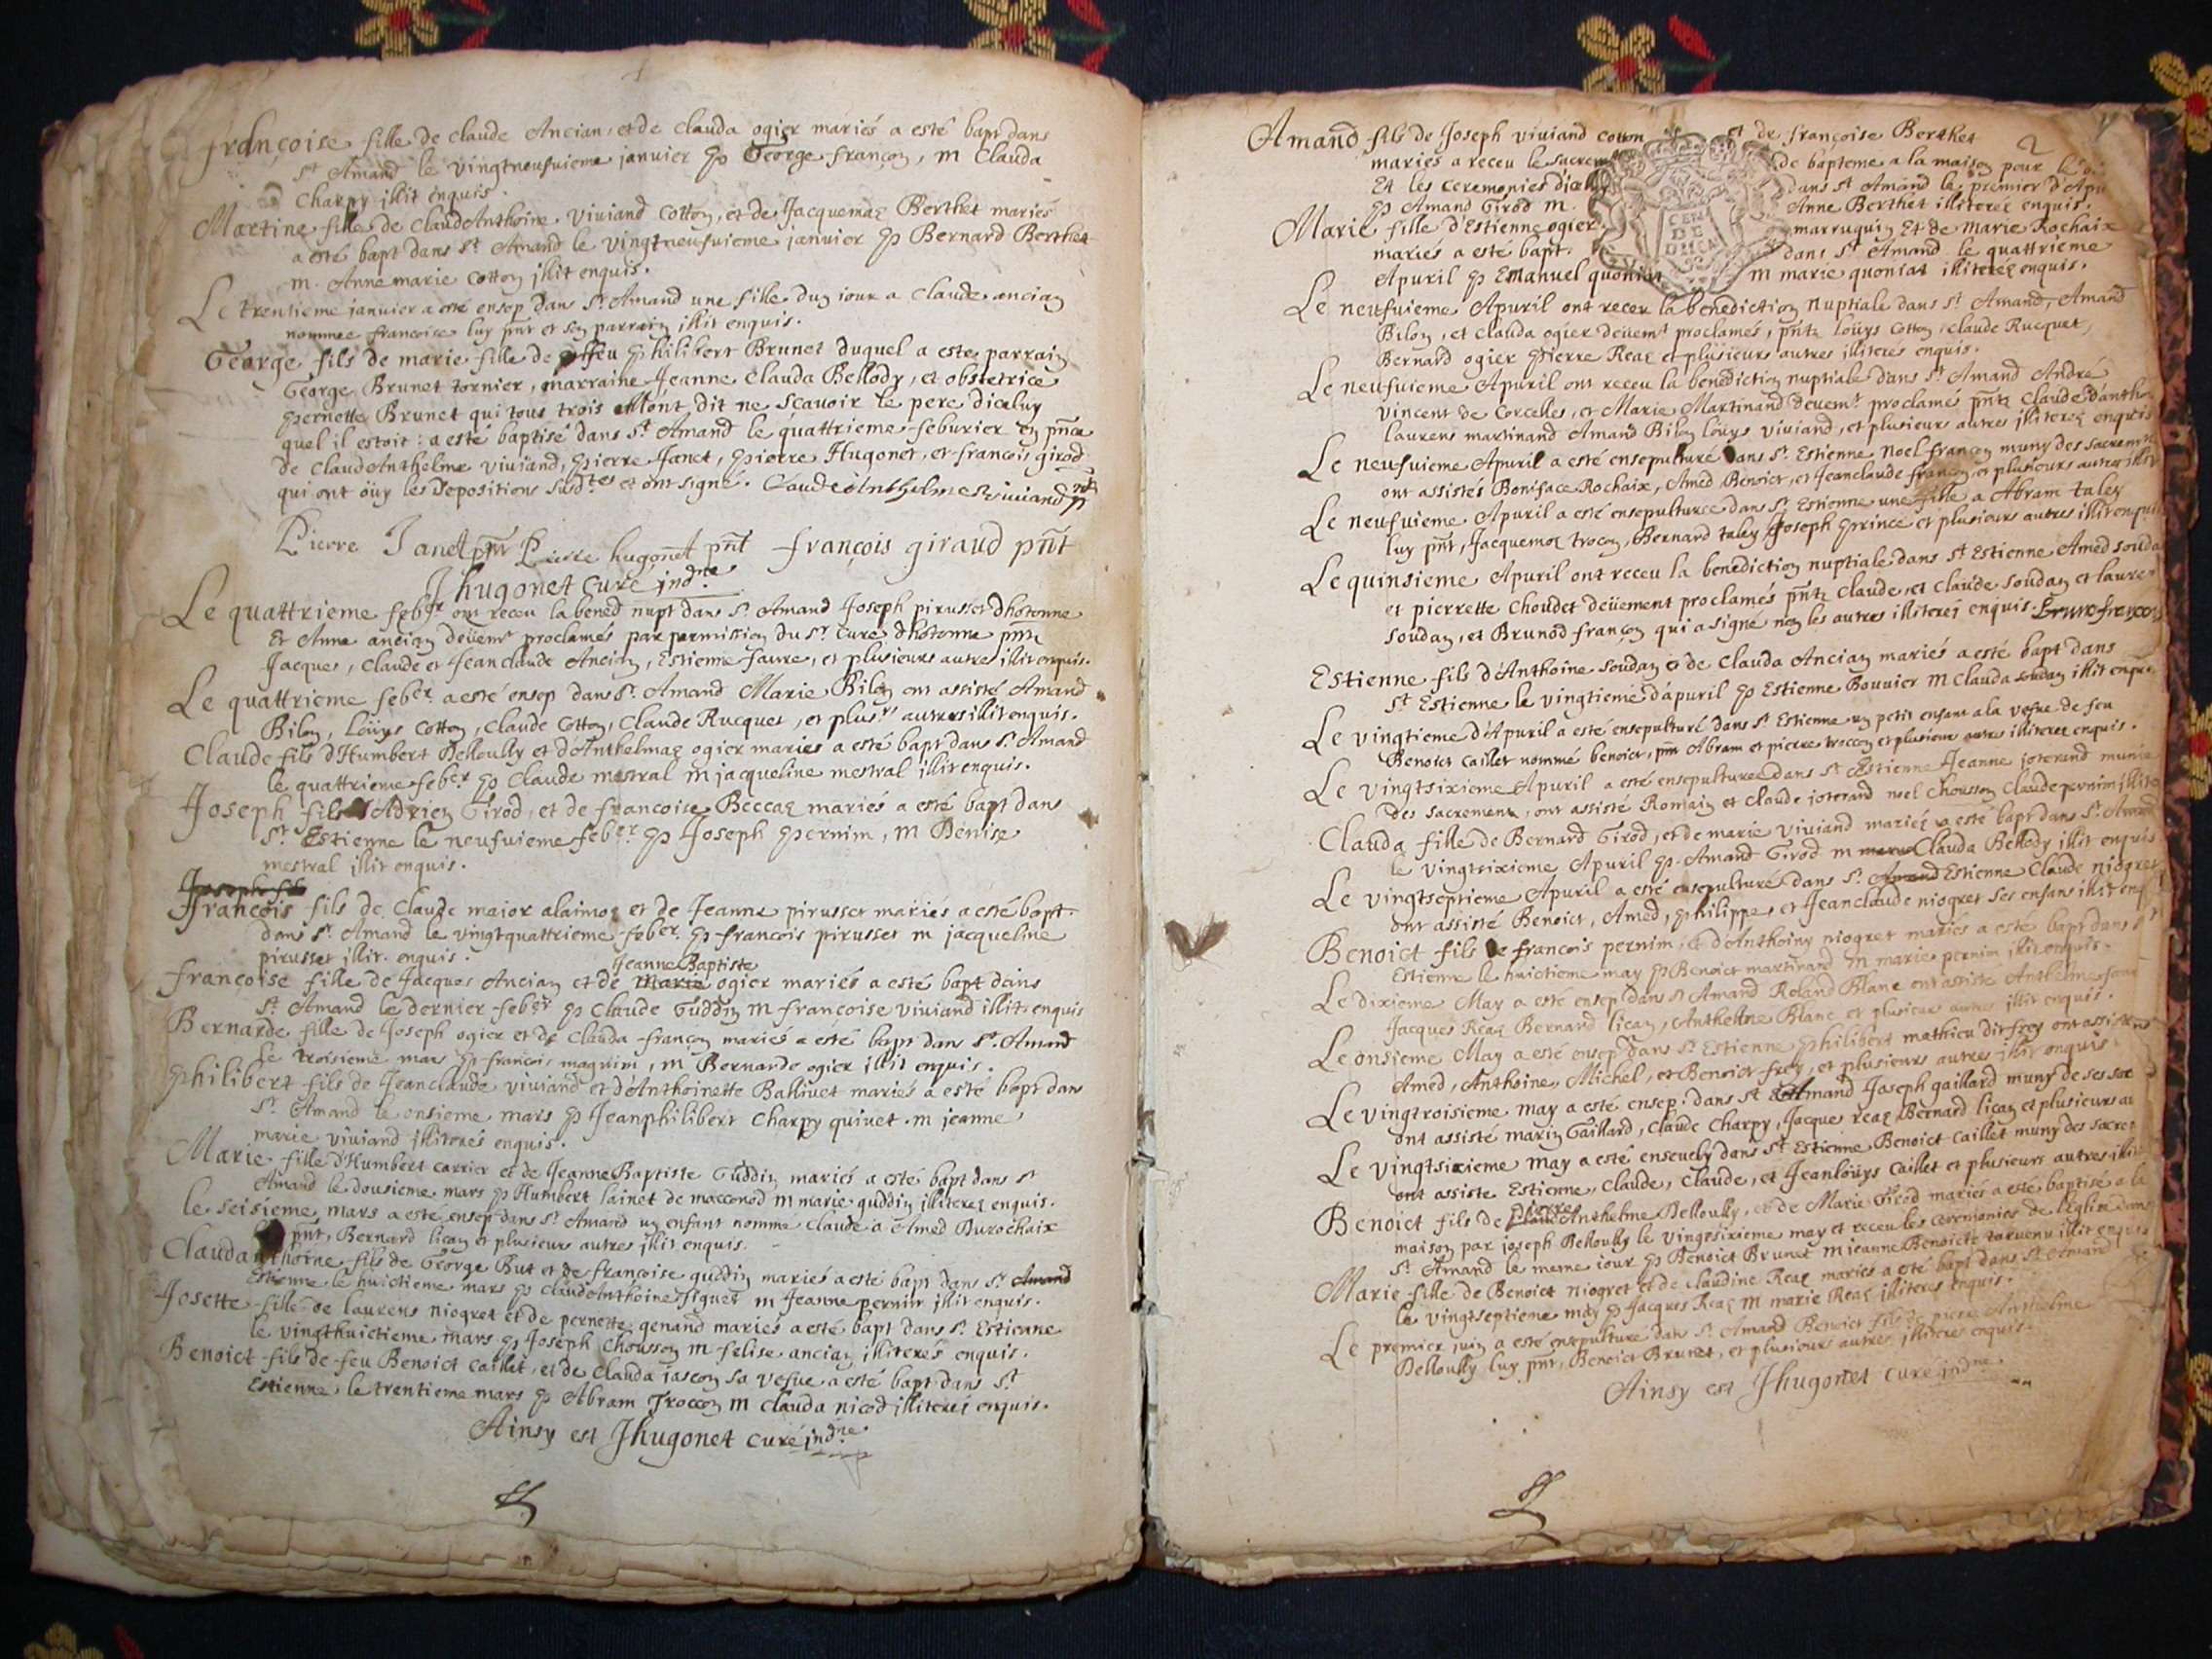 françoise fille de claude Ancian, et de clauda ogier mariés a esté bapt dans
St Amand le vingtneufuieme januier p George françon, m Clauda
Charpy illit enquis.
Martine fille de ClaudAnthoine viuiand cotton, et de Jacquemaz Berthet mariés
a esté bapt dans St Amand le vingtneufuieme januier p Bernard Berthet
m. Annemarie cotton illit enquis.
Le trentieme januier a esté ensep dans St Amand une fille dun iour a Claude ancian
nommee francoise luy pnt et son parrain illit enquis.
George fils de marie fille de feu philibert Brunet duquel a este parrain
George Brunet tornier, marraine Jeanne Clauda Bellody, et obstetrice
pernette Brunet qui tous trois ont dit ne scauoir le pere diceluy
quel il estoit: a esté baptisé dans St Amand le quattrieme feburier en pnce
de ClaudeAnthelme viuiand, pierre Janet, pierre Hugonet, et francois girod
qui ont öuy les depositions susdtes et ont signé. ClaudeAnthelme viuiand pnt
Pierre Janet pnt Pierre hugonet pnt françois giraud pnt
Jhugonet curé indne
Le quattrieme feber ont receu la bened nupt dans St Amand Joseph pirusset dhotonne
Et Anne ancian deüemt proclamés par permission du Sr curé dhotonne pnts
Jacques, Claude et Jeanclaude Ancian, Estienne faure, et plusieurs autres illit enquis.
Le quattrieme feber a esté ensep dans St Amand Marie Bilon ont assisté Amand
Bilon, Löuys Cotton, Claude Cotton, Claude Rucquet, et plusrs autres illit enquis.
Claude fils d'Humbert Belloully et d'Anthelmaz ogier mariés a esté bapt dans St Amand
le quattrieme feber p Claude mestral m jacqueline mestral illit enquis.
Joseph fils d'Adrien Girod, et de francoise Beccaz mariés a esté bapt dans
St Estienne le neufuieme feber p Joseph pernim, m Denise
mestral illit enquis.
Joseph fils
François fils de Claude maior alaimoz et de Jeanne pirusset mariés a esté bapt.
dans St Amand le vingtquattrieme feber p francois pirusset m jacqueline
pirusset illit. enquis.
Jeanne Baptiste
françoise fille de Jacques Ancian et de Marie ogier mariés a esté bapt dans
St Amand le dernier feber p Claude Guddin m francoise viuiand illit enquis
Bernarde fille de Joseph ogier et de Clauda françon mariés a esté bapt dans St Amand
le troisieme mars p francois magnim, m Bernarde ogier illit enquis.
philibert fils de Jeanclaude viuiand et d'Anthoinette Balliuet mariés a esté bapt dans
St Amand le onsieme mars p Jeanphilibert Charpy quiuet. m jeanne
marie viuiand illiterés enquis.
Marie fille d'Humbert carrier et de JeanneBaptiste Guddin mariés a esté bapt dans St
Amand le dousieme mars p Humbert lainet de macconod m marie guddin illiterez enquis.
le seisieme mars a esté ensep dans St Amand un enfant nomme claude a Amed Durochaix
pnt, Bernard lican et plusieurs autres illit enquis.
Claudanthoine fils de George But et de francoise guddin mariés a esté bapt dans St Amand
Estienne le huictieme mars p ClaudAnthoine figuet m Jeanne pernim illit enquis.
Josette fille de laurens niogret et de pernette genand mariés a esté bapt dans St Estienne
le vingthuictieme mars p Joseph Chousson m felise ancian illiterés enquis.
Benoict fils de feu Benoict Caillet, et de Clauda iascon sa vefue a esté bapt dans St
Estienne le trentieme mars p Abram Troccon m clauda nicod illiterés enquis.
Ainsy est Jhugonet curé indne
2
Amand fils de Joseph viuiand cotton et de françoise Berthet
mariés a receu le sacrem de bapteme a la maison pour le
Et les ceremonies d'icel dans St Amand le premier d'Apu
p Amand Girod m. Anne Berthet illiterez enquis.
Marie fille d'Estienne ogier marruquin Et de Marie Rochaix
mariés a esté bapt. dans St Amand le quattrieme
Apuril p Emanuel quoniat m marie quoniat illiterez enquis.
CEN
DE
DUCA
Le neufuieme Apuril ont receu la benediction nuptiale dans St Amand, Amand
Bilon, et Clauda ogier deuemt proclamés, pnts löuys Cotton, Claude Rucquet,
Bernard ogier pierre Reaz et plusieurs autres illiterés enquis.
Le neufuieme Apuril ont receu la benediction nuptiale dans St Amand André
vincent de Corcelles, et Marie Martinand deuemt proclamés pnts Claude d'antho
laurens martinand Amand Bilon löuys viuiand, et plusieurs autres illiterez enquis
Le neufuieme Apuril a esté ensepulturé dans St Estienne noel françon muny des sacremts
ont assistés Boniface Rochaix, Amed Benoict, et Jeanclaude françon, et plusieurs autres illit
Le neufuieme Apuril a esté ensepulturée dans St Estienne une fille a Abram taley
luy pnt, Jacquemoz trocon, Bernard taley Joseph prince et plusieurs autres illit enquis
Le quinsieme Apuril ont receu la benediction nuptiale dans St Estienne Amed soudan
et pierrette Choudet deüement proclamés pnts Claude, et Claude Soudan et lauren
soudan, et Brunod françon qui a signé non les autres illiterez enquis. Bruno françon
Estienne fils d'Anthoine soudan et de Clauda Ancian mariés a esté bapt dans
St Estienne le vingtieme d'apuril p Estienne Bouuier m Clauda soudan illit enquis
Le vingtieme d'Apuril a esté ensepulturé dans St Estienne un petit enfant a la vefue de feu
Benoict Caillet nommé benoict, pnt Abram et pierre troccon et plusieurs autres illiterez enquis.
Le vingtsixieme Apuril a esté ensepulturée dans St Estienne Jeanne joterand munie
des sacrements, ont assisté Romain et Claude joterand noel Chousson Claude pernim illite
Clauda fille de Bernard Girod, et de marie viuiand mariéz a esté bapt dans St Amand
le vingtsixieme Apuril p Amand Girod m marie Clauda Bellody illit enquis
Le vingtseptieme Apuril a esté ensepulturé dans St Amand Estienne Claude niogret
ont assisté Benoict, Amed, philippe, et Jeanclaude niogret ses enfans illit enq
Benoict fils de françois pernim, et d'Anthoiny niogret mariés a esté bapt dans St
Estienne le huictieme may p Benoict martinand m marie pernim illit enquis.
Le dixieme May a esté ensep dans St Amand Roland Blanc ont assisté Anthelme
Jacques Reaz Bernard lican, Anthelme Blanc et plusieurs autres illit enquis.
Le onsieme May a esté ensep dans St Estienne philibert mathieu dit frey ont assistés
Amed, Anthoine, Michel, et Benoict frey, et plusieurs autres illit enquis.
Le vingtroisieme may a esté ensep. dans St Amand Joseph gaillard muny de ses sac
ont assisté marin Gaillard, Claude Charpy, Jacque reaz Bernard lican et plusieurs au
Le vingtsixieme may a esté enseuely dans St Estienne Benoict Caillet muny des sacre
ont assiste Estienne, Claude, Claude, et Jeanlöuys Caillet et plusieurs autres illi
Benoict fils de pierre Anthelme Belloully, et de Marie Gicod mariés a esté baptisé a la
maison par joseph Belloully le vingtsixieme may et receu les ceremonies de l'Eglise dans
St Amand le meme iour p Benoict Brunet m jeanne Benoicte taruenu illit enquis
Marie fille de Benoict niogret et de Claudine Reaz mariés a esté bapt dans St Amand
le vingtseptieme may p Jacques Reaz m marie Reaz illiteres enquis.
Le premier juin a esté ensepulturé dans St Amand Benoict fils de pierre Anthelme
Belloully luy pnt, Benoict Brunet, et plusieurs autres illiteres enquis.
Ainsy est Jhugonet curé indne